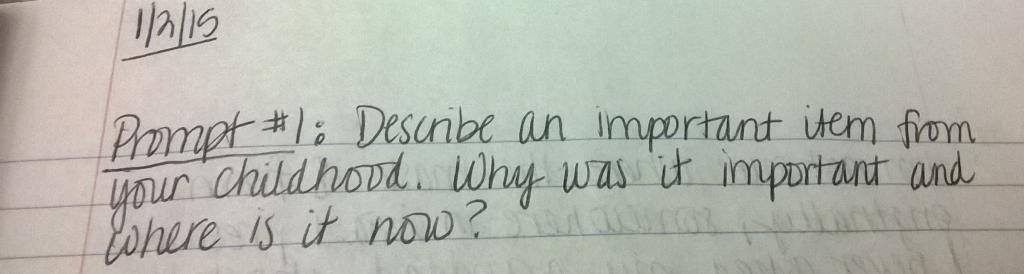 1/2/15
Prompt #1: Describe an important item from
your childhood. Why was it important and
where is it now?